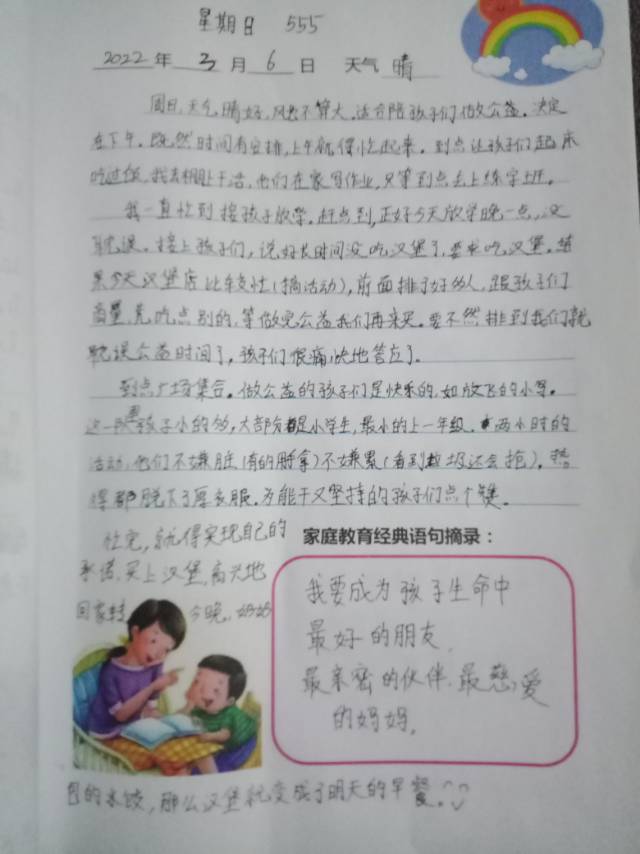 星期日 555
2022年 3 月 6 日 天气 晴
周日,天气晴好,风也不算大,适合陪孩子们做公益。决定
在下午。既然时间有安排,上午就得忙起来。到点让孩子们起床
吃过饭,我去棚上干活,他们在家写作业,只等到点去上练字班。
我一直忙到接孩子放学。赶点到,正好今天放学晚一点,没
耽误。接上孩子们,说好长时间没吃汉堡了,要求吃汉堡。结
果今天汉堡店比较忙(搞活动),前面排了好多人,跟孩子们
商量,先吃点别的,等做完公益我们再来买。要不然排到我们就
耽误公益时间了,孩子们很痛快地答应了。
到点广场集合。做公益的孩子们是快乐的,如放飞的小鸟。
这一孩子小的多,大部分是小学生,最小的上一年级。两小时的
活动,他们不嫌脏(有的用手拿)不嫌累(看到垃圾还会抢)。热
得都脱下了厚衣服。为能干又坚持的孩子们点个赞。
捡完,就得实现自己的
承诺,买上汉堡,高兴地
回家转 今晚,奶奶
包的水饺,那么汉堡就变成了明天的早餐。
家庭教育经典语句摘录:
我要成为孩子生命中
最好的朋友,
最亲密的伙伴,最慈爱
的妈妈。